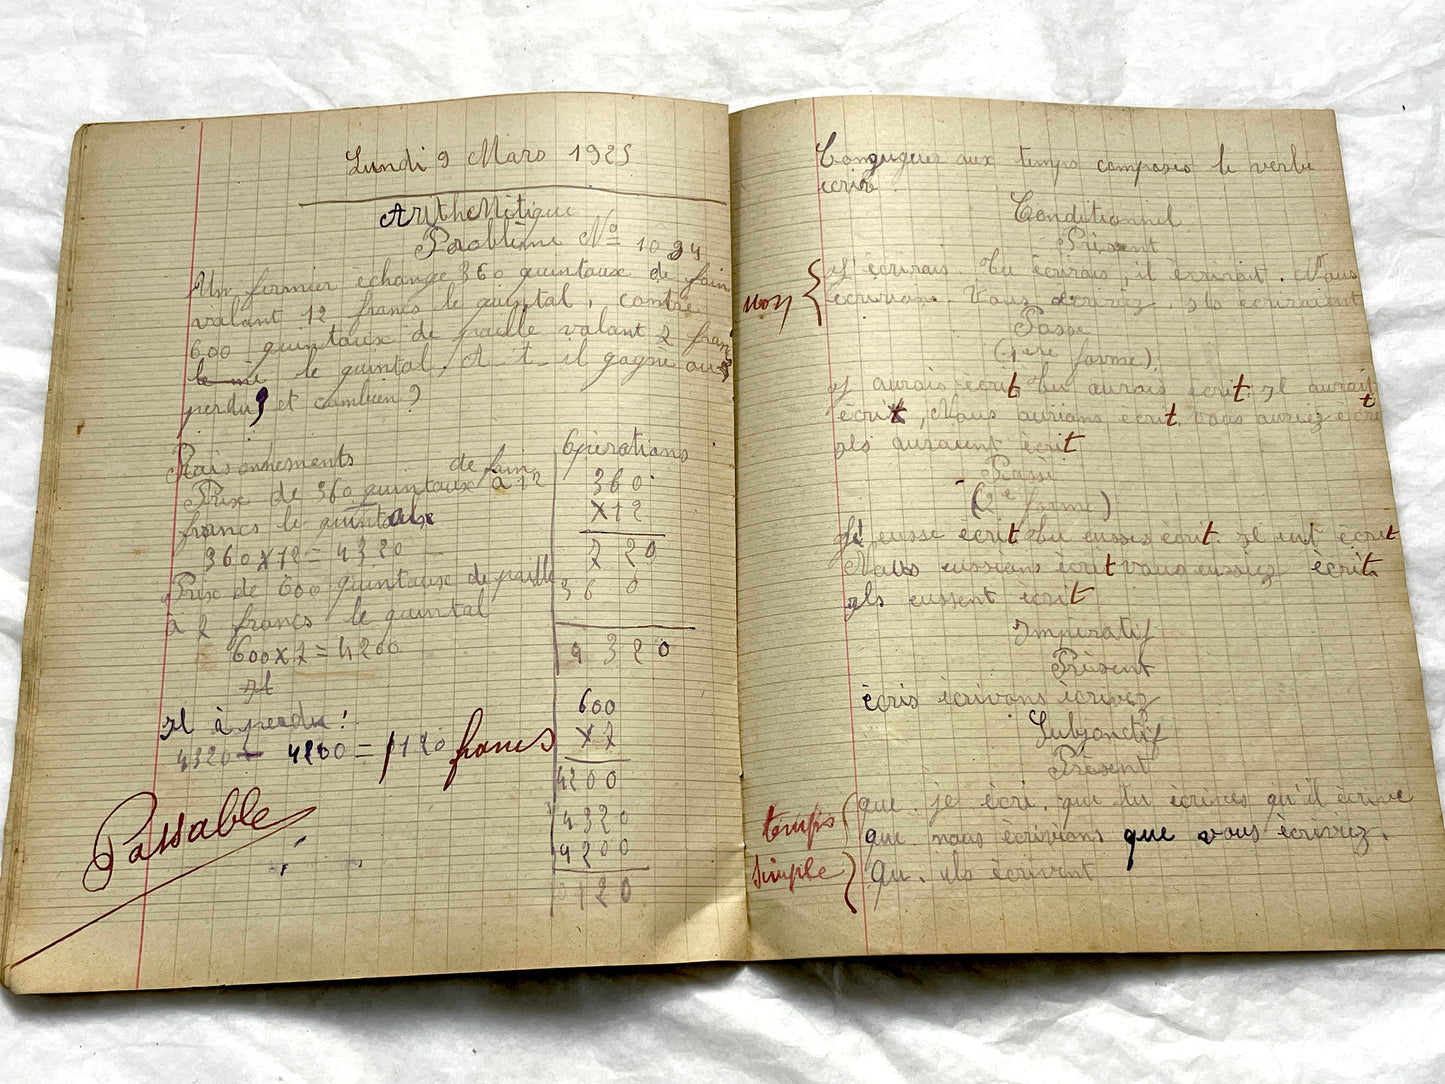 Lundi 9 Mars 1925
Arithemétique
Problème Nº 1034
Un fermier échange 360 quintaux de foin
valant 12 francs le quintal, contre
600 quintaux de paille valant 7 francs
le le quintal, A t-il gagné ou
perdu, et combien ?
Raisonnements
de foin
Prix de 360 quintaux à 12
francs le quintaux
360 x 12 = 4320
Prix de 600 quintaux de paille
à 7 francs le quintal
600 x 7 = 4200
Il
Il à perdu :
4320 - 4200 = 120 francs
Passable
Opérations
360
x12
720
360
4320
600
x7
4200
4320
4200
0120
Conguguer aux temps composés le verbe
écrire
Conditionnel
Présent
non
J'écrirais. Tu écrirais, il écrirait. Nous
écririons. Vous écririez. Ils écriraient
Passé
(1ere forme).
J'aurais écrit tu aurais écrit Il aurait
écrit, Nous aurions écrit. vous auriez écrit
Ils auraient écrit
Passé
(2e forme)
J'eusse écrit tu eusses écrit. Il eut écrit
Nous eussions écrit vous eussiez écrit.
Ils eussent écrit
Impératif
Présent
écris écrivons écrivez
Subjonctif
Présent
temps
simple
que. je écri. que tu écrives qu'il écrive
que nous écrivions que vous écrivez.
Qu. ils écrivent